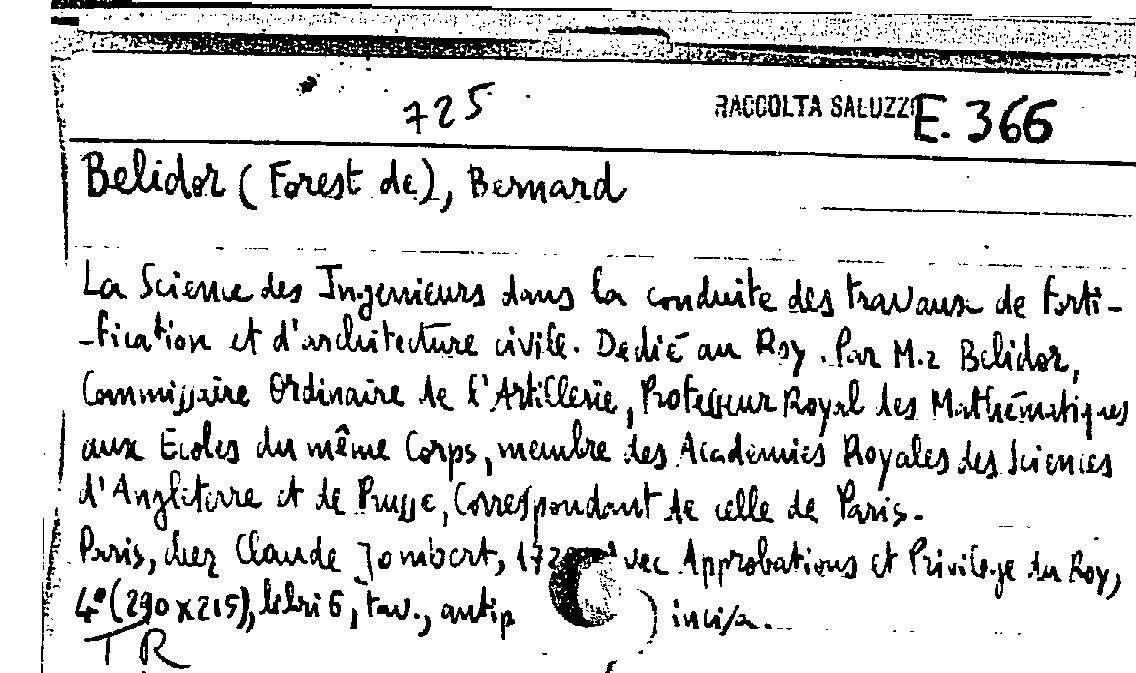 725 RACCOLTA SALUZZO E. 366
Belidor (Forest de), Bernard
La Science des Ingenieurs dans la conduite des travaux de forti-
-fication et d'architecture civile. Dedié au Roy. Par M.r Belidor,
Commissaire Ordinaire de l'Artillerie, Professeur Royal des Mathématiques
aux Ecoles du même Corps, membre des Academies Royales des Sciences
d'Angleterre et de Prusse, Correspondant de celle de Paris.
Paris, chez Claude Jombert, 172 vec Approbations et Privilege du Roy,
4° (290 x 215), libri 6, tav., antip ) incisa.
TR